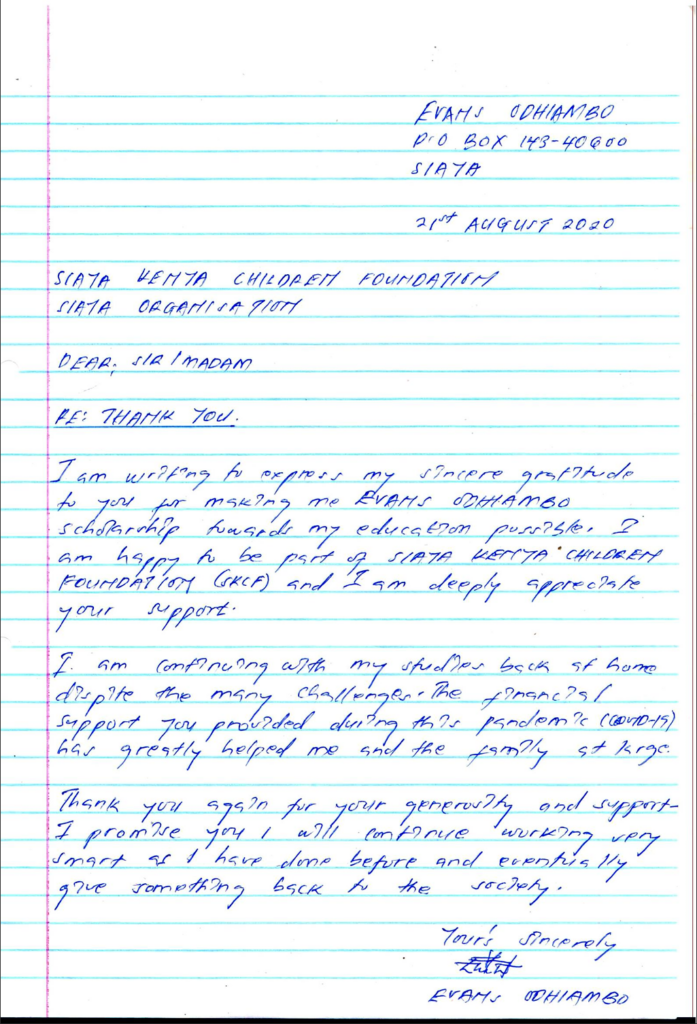 EVANS ODHIAMBO
P.O BOX 143-40600
SIAYA
21st AUGUST 2020
SIAYA KENYA CHILDREN FOUNDATION
SIAYA ORGANISATION
DEAR; SIR/MADAM
RE: THANK YOU.
I am writing to express my sincere gratitude
to you for making me EVANS ODHIAMBO
scholarship towards my education possible. I
am happy to be part of SIAYA KENYA CHILDREN
FOUNDATION (SKCF) and I am deeply appreciate
your support.
I am continuing with my studies back at home
dispite the many challenges. The financial
support you provided during this pandemic (COVID-19)
has greatly helped me and the family at large.
Thank you again for your generosity and support-
I promise you I will continue working very
smart as I have done before and eventually
give something back to the society.
Your's sincerely
EVANS ODHIAMBO